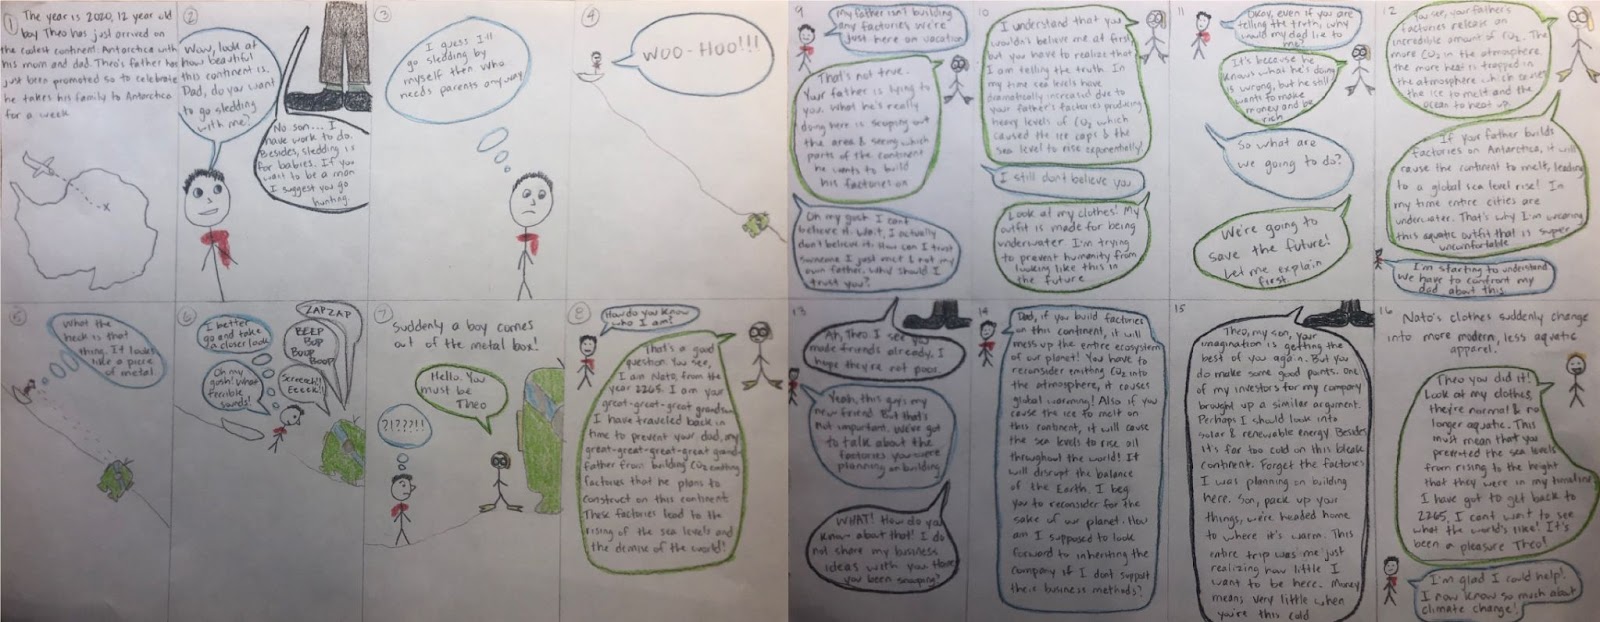 1
The year is 2020, 12 year old
boy Theo has just arrived on
the coolest continent: Antarctica with
his mom and dad. Theo's father has
just been promoted so to celebrate
he takes his family to Antarctica
for a week
x
2
Wow, look at
how beautiful
this continent is.
Dad, do you want
to go sledding
with me?
No son... I
have work to do.
Besides, sledding is
for babies. If you
want to be a man
I suggest you go
hunting.
3
I guess I'll
go sledding by
myself then who
needs parents anyway
4
WOO-HOO!!!
5
What the
heck is that
thing. It looks
like a piece
of metal.
6
I better
go and take
a closer look
Oh my
gosh! What
terrible
sounds!
ZAP ZAP
BEEP
BOP
BOUP
BOOP
Screech!!
Eeeek!!
7
Suddenly a boy comes
out of the metal box!
Hello. You
must be
Theo
?!???!!
8
How do you know
who I am?
That's a good
question. You see,
I am Nato, from the
year 2265. I am your
great-great-great grandson
I have traveled back in
time to prevent your dad, my
great-great-great-great grand-
father from building CO2 emitting
factories that he plans to
construct on this continent.
These factories lead to the
rising of the sea levels and
the demise of the world!
9
My father isn't building
any factories we're
just here on vacation
That's not true.
Your father is lying to
you. What he's really
doing here is scoping out
the area & seeing which
parts of the continent
he wants to build
his factories on
Oh my gosh I cant
believe it. Wait, I actually
don't believe it. How can I trust
someone I just met & not my
own father. Why should I
trust you?
10
I understand that you
wouldn't believe me at first
but you have to realize that
I am telling the truth. In
my time sea levels have
dramatically increased due to
your father's factories producing
heavy levels of CO2 which
caused the ice caps & the
sea level to rise exponentially!
I still don't believe you
Look at my clothes! My
outfit is made for being
underwater. I'm trying
to prevent humanity from
looking like this in
the future
11
Okay, even if you are
telling the truth, why
would my dad lie to
me?
It's because he
knows what he's doing
is wrong, but he still
wants to make
money and be
rich
So what are
we going to do?
We're going to
save the future!
Let me explain
first.
12
You see, your father's
factories release an
incredible amount of CO2. The
more CO2 in the atmosphere,
the more heat is trapped in
the atmosphere which causes
the ice to melt and the
ocean to heat up.
If your father builds
factories on Antarctica, it will
cause the continent to melt, leading
to a global sea level rise! In
my time entire cities are
underwater. That's why I'm wearing
this aquatic outfit that is super
uncomfortable
I'm starting to understand
We have to confront my
dad about this
13
Ah, Theo I see you
made friends already. I
hope they're not poor.
Yeah, this guys my
new friend. But that's
not important. We've got
to talk about the
factories you were
planning on building
WHAT! How do you
know about that! I do
not share my business
ideas with you. Have
you been snooping?
14
Dad, if you build factories
on this continent, it will
mess up the entire ecosystem
of our planet! You have to
reconsider emitting CO2 into
the atmosphere, it causes
global warming! Also if you
cause the ice to melt on
this continent, it will cause
the sea levels to rise all
throughout the world! It
will disrupt the balance
of the Earth. I beg
you to reconsider for the
sake of our planet. How
am I supposed to look
forward to inheriting the
company if I dont support
their business methods?
15
Theo, my son, your
imagination is getting the
best of you again. But you
do make some good points. One
of my investors for my company
brought up a similar argument.
Perhaps I should look into
solar & renewable energy. Besides
it's far too cold on this bleak
continent. Forget the factories
I was planning on building
here. Son, pack up your
things, we're headed home
to where it's warm. This
entire trip was me just
realizing how little I
want to be here. Money
means very little when
you're this cold
16
Nato's clothes suddenly change
into more modern, less aquatic
apparel.
Theo you did it!
Look at my clothes,
they're normal & no
longer aquatic. This
must mean that you
prevented the sea levels
from rising to the height
that they were in my timeline
I have got to get back to
2265, I cant wait to see
what the world's like! It's
been a pleasure Theo!
I'm glad I could help!
I now know so much about
climate change!